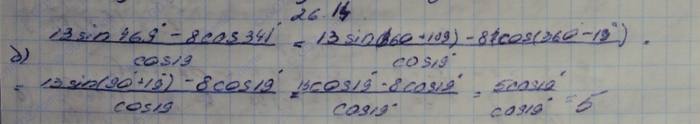 26.14
д) (13 sin 469° - 8 cos 341°) / cos 19 = (13 sin(360 + 109) - 8 cos(360° - 19°)) / cos 19° =
= (13 sin(90° + 19°) - 8 cos 19°) / cos 19 = (13 cos 19° - 8 cos 19°) / cos 19° = 5 cos 19° / cos 19° = 5